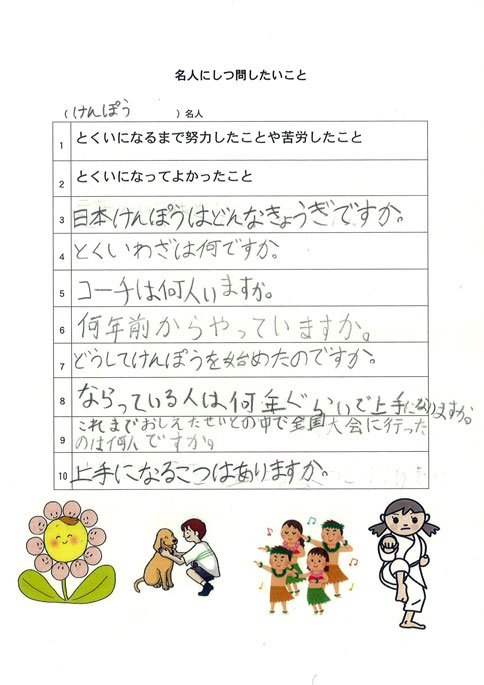 名人にしつ問したいこと
（けんぽう　　　）名人
1 とくいになるまで努力したことや苦労したこと
2 とくいになってよかったこと
3 日本けんぽうはどんなきょうぎですか。
4 とくいわざは何ですか。
5 コーチは何人いますか。
6 何年前からやっていますか。
7 どうしてけんぽうを始めたのですか。
8 ならっている人は何年ぐらいで上手になりますか。
9 これまでおしえたせいとの中で全国大会に行った
のは何人ですか。
10 上手になるこつはありますか。